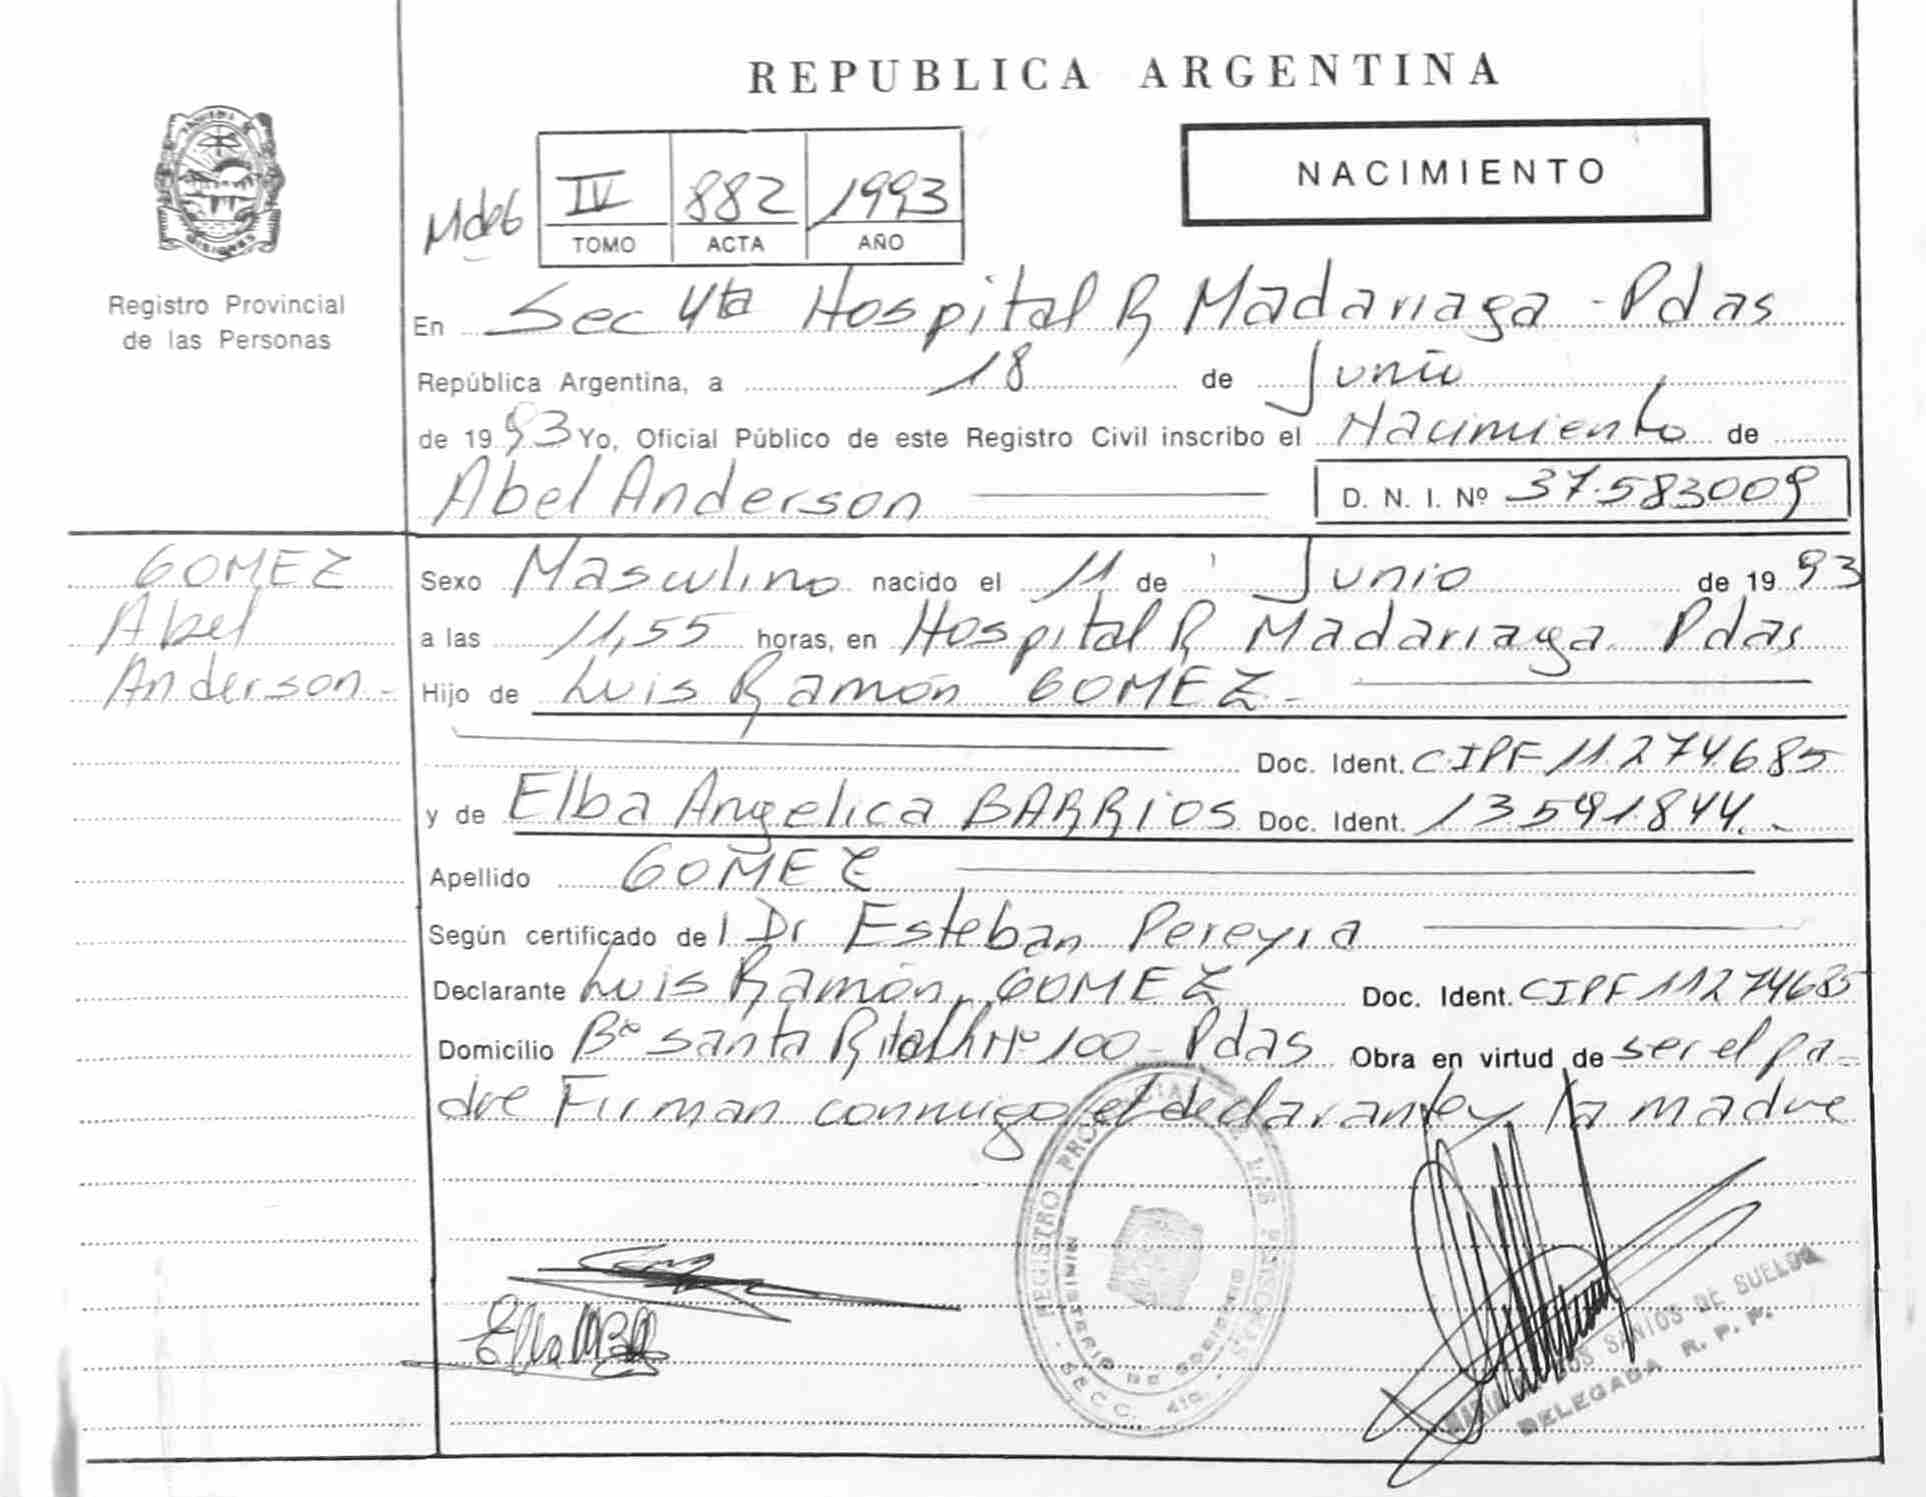 REPUBLICA ARGENTINA
NACIMIENTO
Registro Provincial
de las Personas
IV 882 1993
TOMO ACTA AÑO
En Sec 4ta Hospital R Madariaga - Pdas
República Argentina, a 18 de Junio
de 1993 Yo, Oficial Público de este Registro Civil inscribo el Nacimiento de
Abel Anderson D. N. I. Nº 37.583009
GOMEZ
Abel
Anderson-
Sexo Masculino nacido el 11 de Junio de 1993
a las 11,55 horas, en Hospital R Madariaga Pdas
Hijo de Luis Ramón GOMEZ-
Doc. Ident. CIPF 11.274.685
y de Elba Angelica BARRIOS Doc. Ident. 13.591.844.-
Apellido GOMEZ
Según certificado del Dr Esteban Pereyra
Declarante Luis Ramón GOMEZ Doc. Ident. CIPF 11274685
Domicilio Bº Santa Rita Nº 100 - Pdas Obra en virtud de ser el pa-
dre Firman conmigo el declarante y la madre
REGISTRO PROVINCIAL DE LAS PERSONAS
MINISTERIO DE GOBIERNO
SECC. 4ta.
Elba
DE SUELDO
DELEGADA R. P. P.